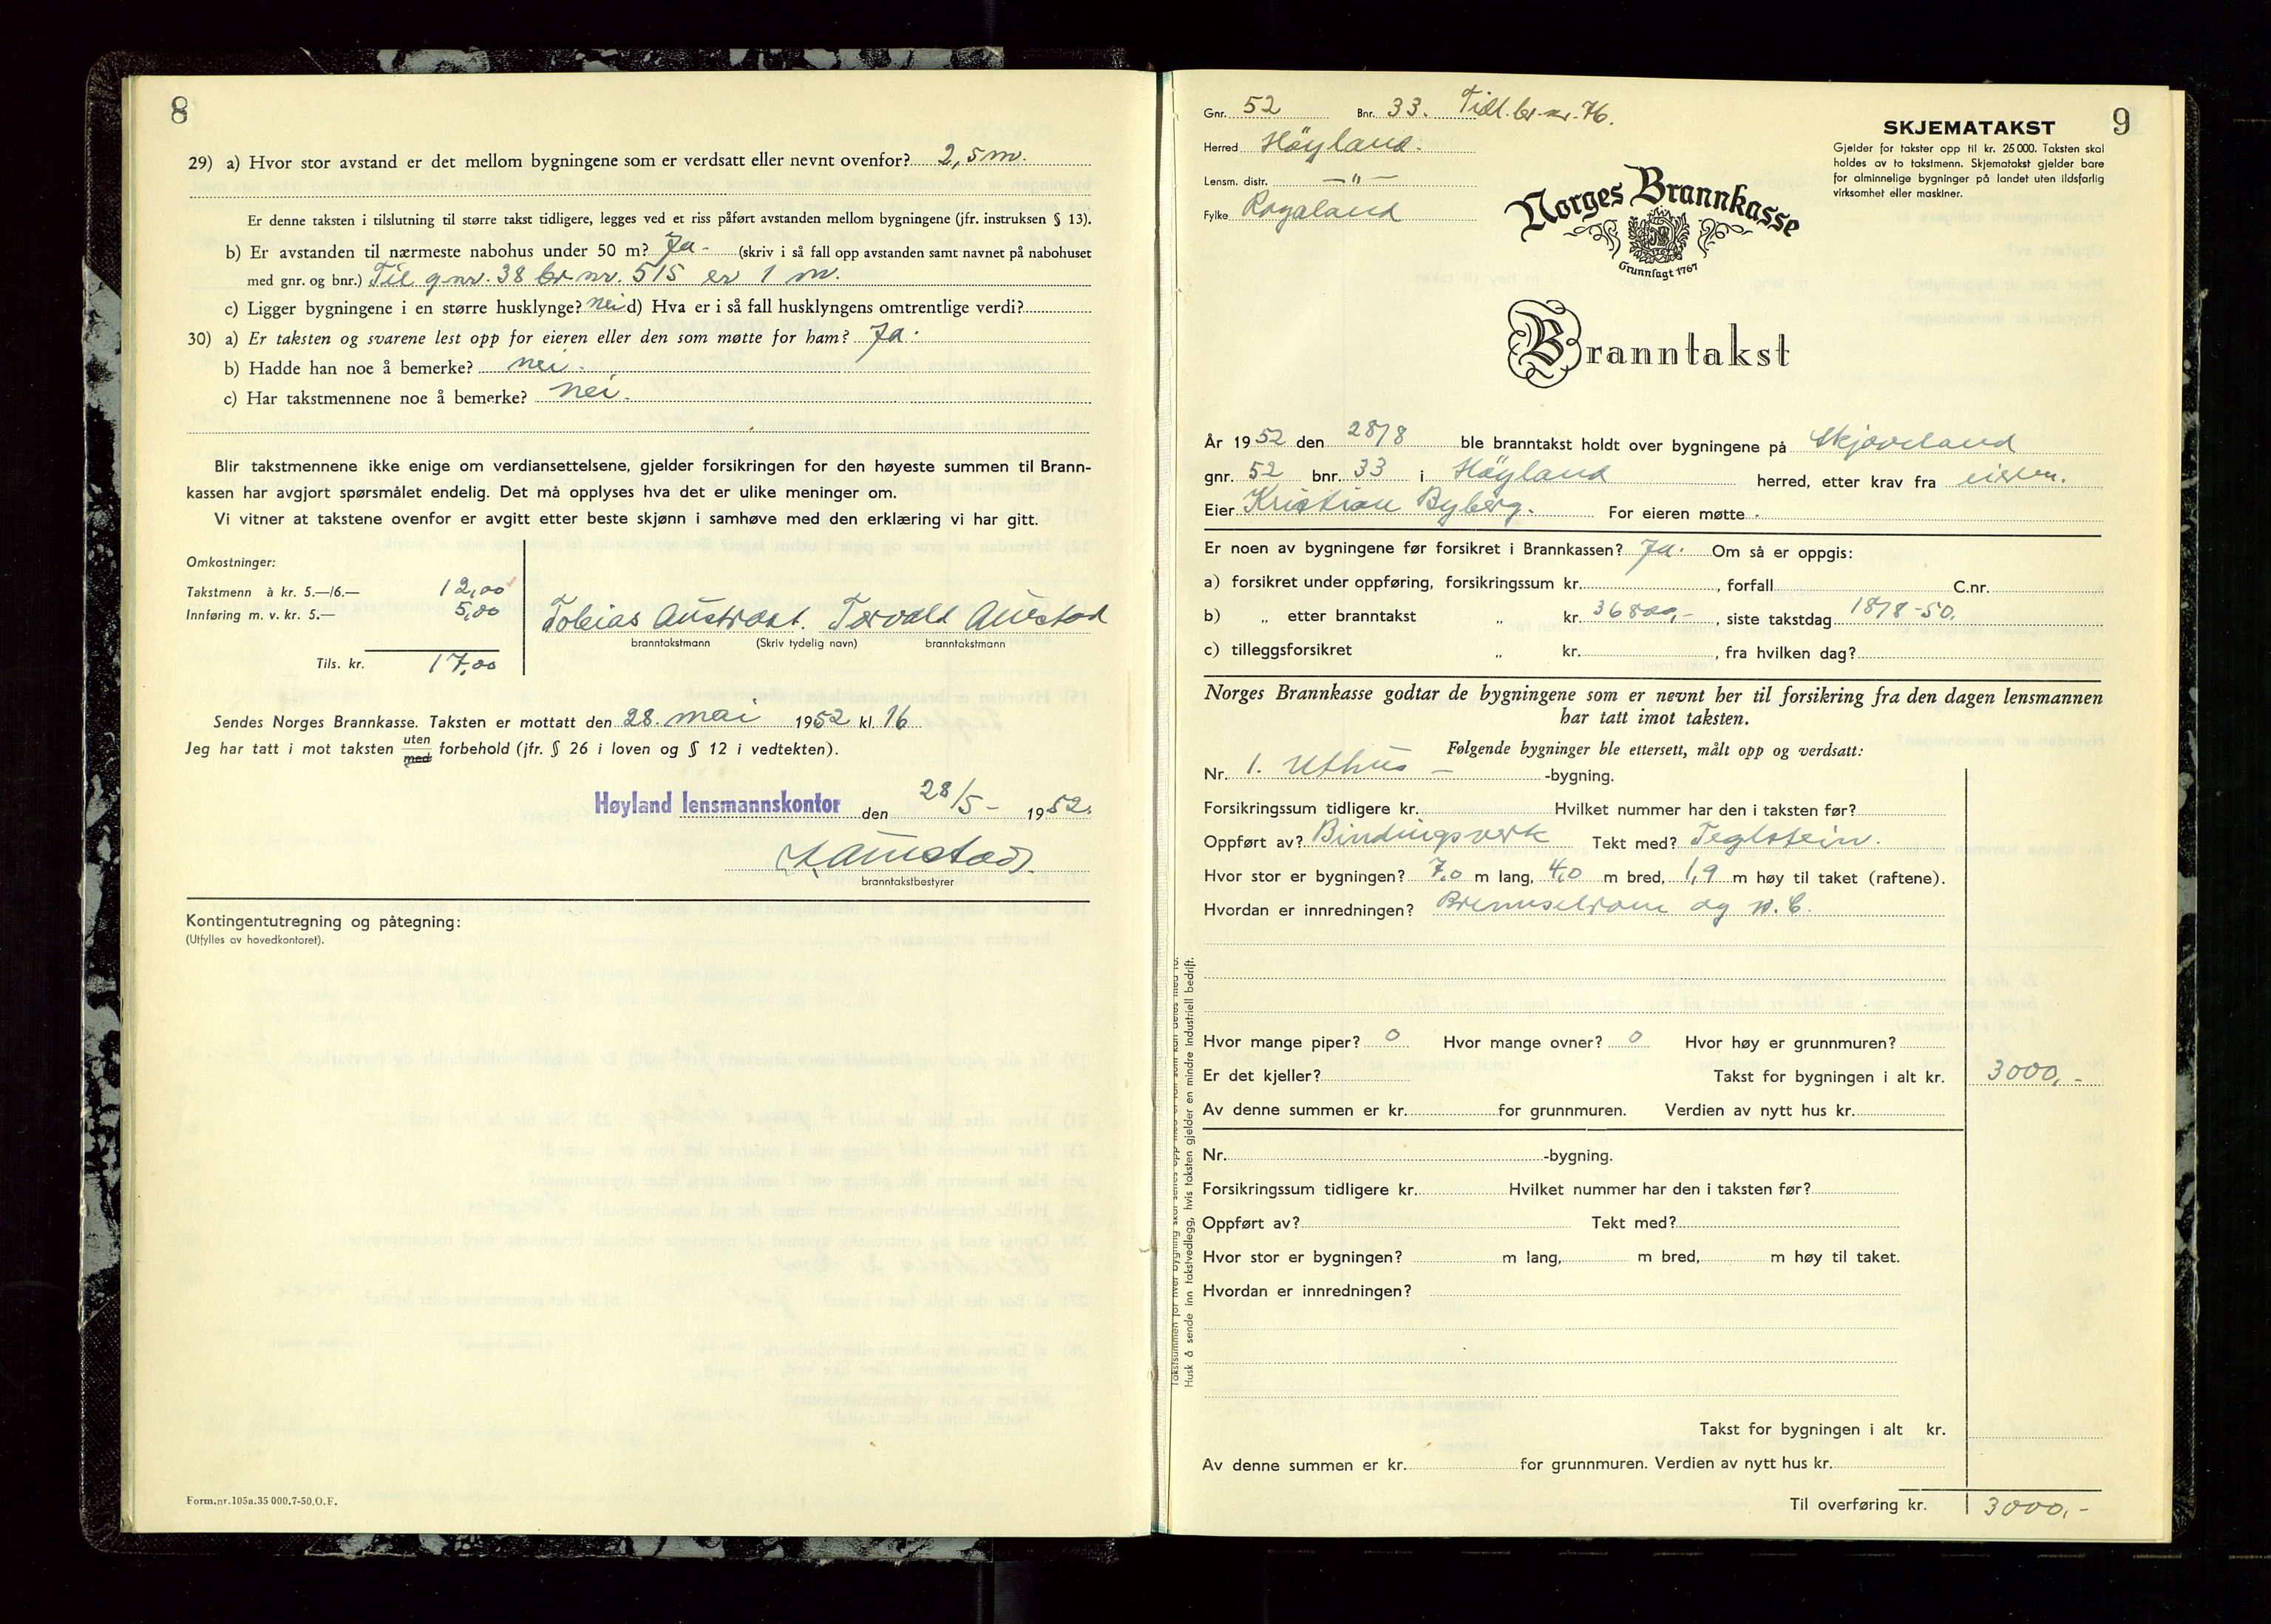 8
29) a) Hvor stor avstand er det mellom bygningene som er verdsatt eller nevnt ovenfor? 2,5 m.
Er denne taksten i tilslutning til større takst tidligere, legges ved et riss påført avstanden mellom bygningene (jfr. instruksen § 13).
b) Er avstanden til nærmeste nabohus under 50 m? Ja - (skriv i så fall opp avstanden samt navnet på nabohuset
med gnr. og bnr.) Til gnr. 38 br.nr. 515 er 1 m.
c) Ligger bygningene i en større husklynge? nei d) Hva er i så fall husklyngens omtrentlige verdi?
30) a) Er taksten og svarene lest opp for eieren eller den som møtte for ham? Ja.
b) Hadde han noe å bemerke? nei.
c) Har takstmennene noe å bemerke? nei.
Blir takstmennene ikke enige om verdiansettelsene, gjelder forsikringen for den høyeste summen til Brann-
kassen har avgjort spørsmålet endelig. Det må opplyses hva det er ulike meninger om.
Vi vitner at takstene ovenfor er avgitt etter beste skjønn i samhøve med den erklæring vi har gitt.
Omkostninger:
Takstmenn à kr. 5.—/6.— 12,00
Innføring m. v. kr. 5.— 5,00
Tils. kr. 17,00
Tobias Austrått. Torvald Austad
branntakstmann (Skriv tydelig navn) branntakstmann
Sendes Norges Brannkasse. Taksten er mottatt den 28. mai 1952 kl. 16
Jeg har tatt i mot taksten uten med forbehold (jfr. § 26 i loven og § 12 i vedtekten).
Høyland lensmannskontor den 28/5 - 1952.
branntakstbestyrer
Kontingentutregning og påtegning:
(Utfylles av hovedkontoret).
Form.nr.105a.35 000.7-50.O.F.
9
Gnr. 52 Bnr. 33. Tidl. br.nr. 76.
Herred Høyland.
Lensm. distr. —"—
Fylke Rogaland
SKJEMATAKST
Gjelder for takster opp til kr. 25 000. Taksten skal
holdes av to takstmenn. Skjematakst gjelder bare
for alminnelige bygninger på landet uten ildsfarlig
virksomhet eller maskiner.
Norges Brannkasse
Grunnlagt 1767
Branntakst
År 1952 den 28/8 ble branntakst holdt over bygningene på Skjæveland
gnr. 52 bnr. 33 i Høyland herred, etter krav fra eieren.
Eier Kristian Byberg. For eieren møtte .
Er noen av bygningene før forsikret i Brannkassen? Ja. Om så er oppgis:
a) forsikret under oppføring, forsikringssum kr. , forfall C.nr.
b) „ etter branntakst „ kr. 36800,- , siste takstdag 18/8-50.
c) tilleggsforsikret „ kr. , fra hvilken dag?
Norges Brannkasse godtar de bygningene som er nevnt her til forsikring fra den dagen lensmannen
har tatt imot taksten.
Følgende bygninger ble ettersett, målt opp og verdsatt:
Nr. 1. Uthus — -bygning.
Forsikringssum tidligere kr. Hvilket nummer har den i taksten før?
Oppført av? Bindingsverk Tekt med? Teglstein.
Hvor stor er bygningen? 7,0 m lang, 4,0 m bred, 1,9 m høy til taket (raftene).
Hvordan er innredningen? Brenselrom og W.C.
Hvor mange piper? 0 Hvor mange ovner? 0 Hvor høy er grunnmuren?
Er det kjeller? Takst for bygningen i alt kr. 3000,-
Av denne summen er kr. for grunnmuren. Verdien av nytt hus kr.
Nr. -bygning.
Forsikringssum tidligere kr. Hvilket nummer har den i taksten før?
Oppført av? Tekt med?
Hvor stor er bygningen? m lang, m bred, m høy til taket.
Hvordan er innredningen?
Takst for bygningen i alt kr.
Av denne summen er kr. for grunnmuren. Verdien av nytt hus kr.
Til overføring kr. 3000,-
Husk å sende inn takstvedlegg, hvis taksten gjelder en mindre industriell bedrift.